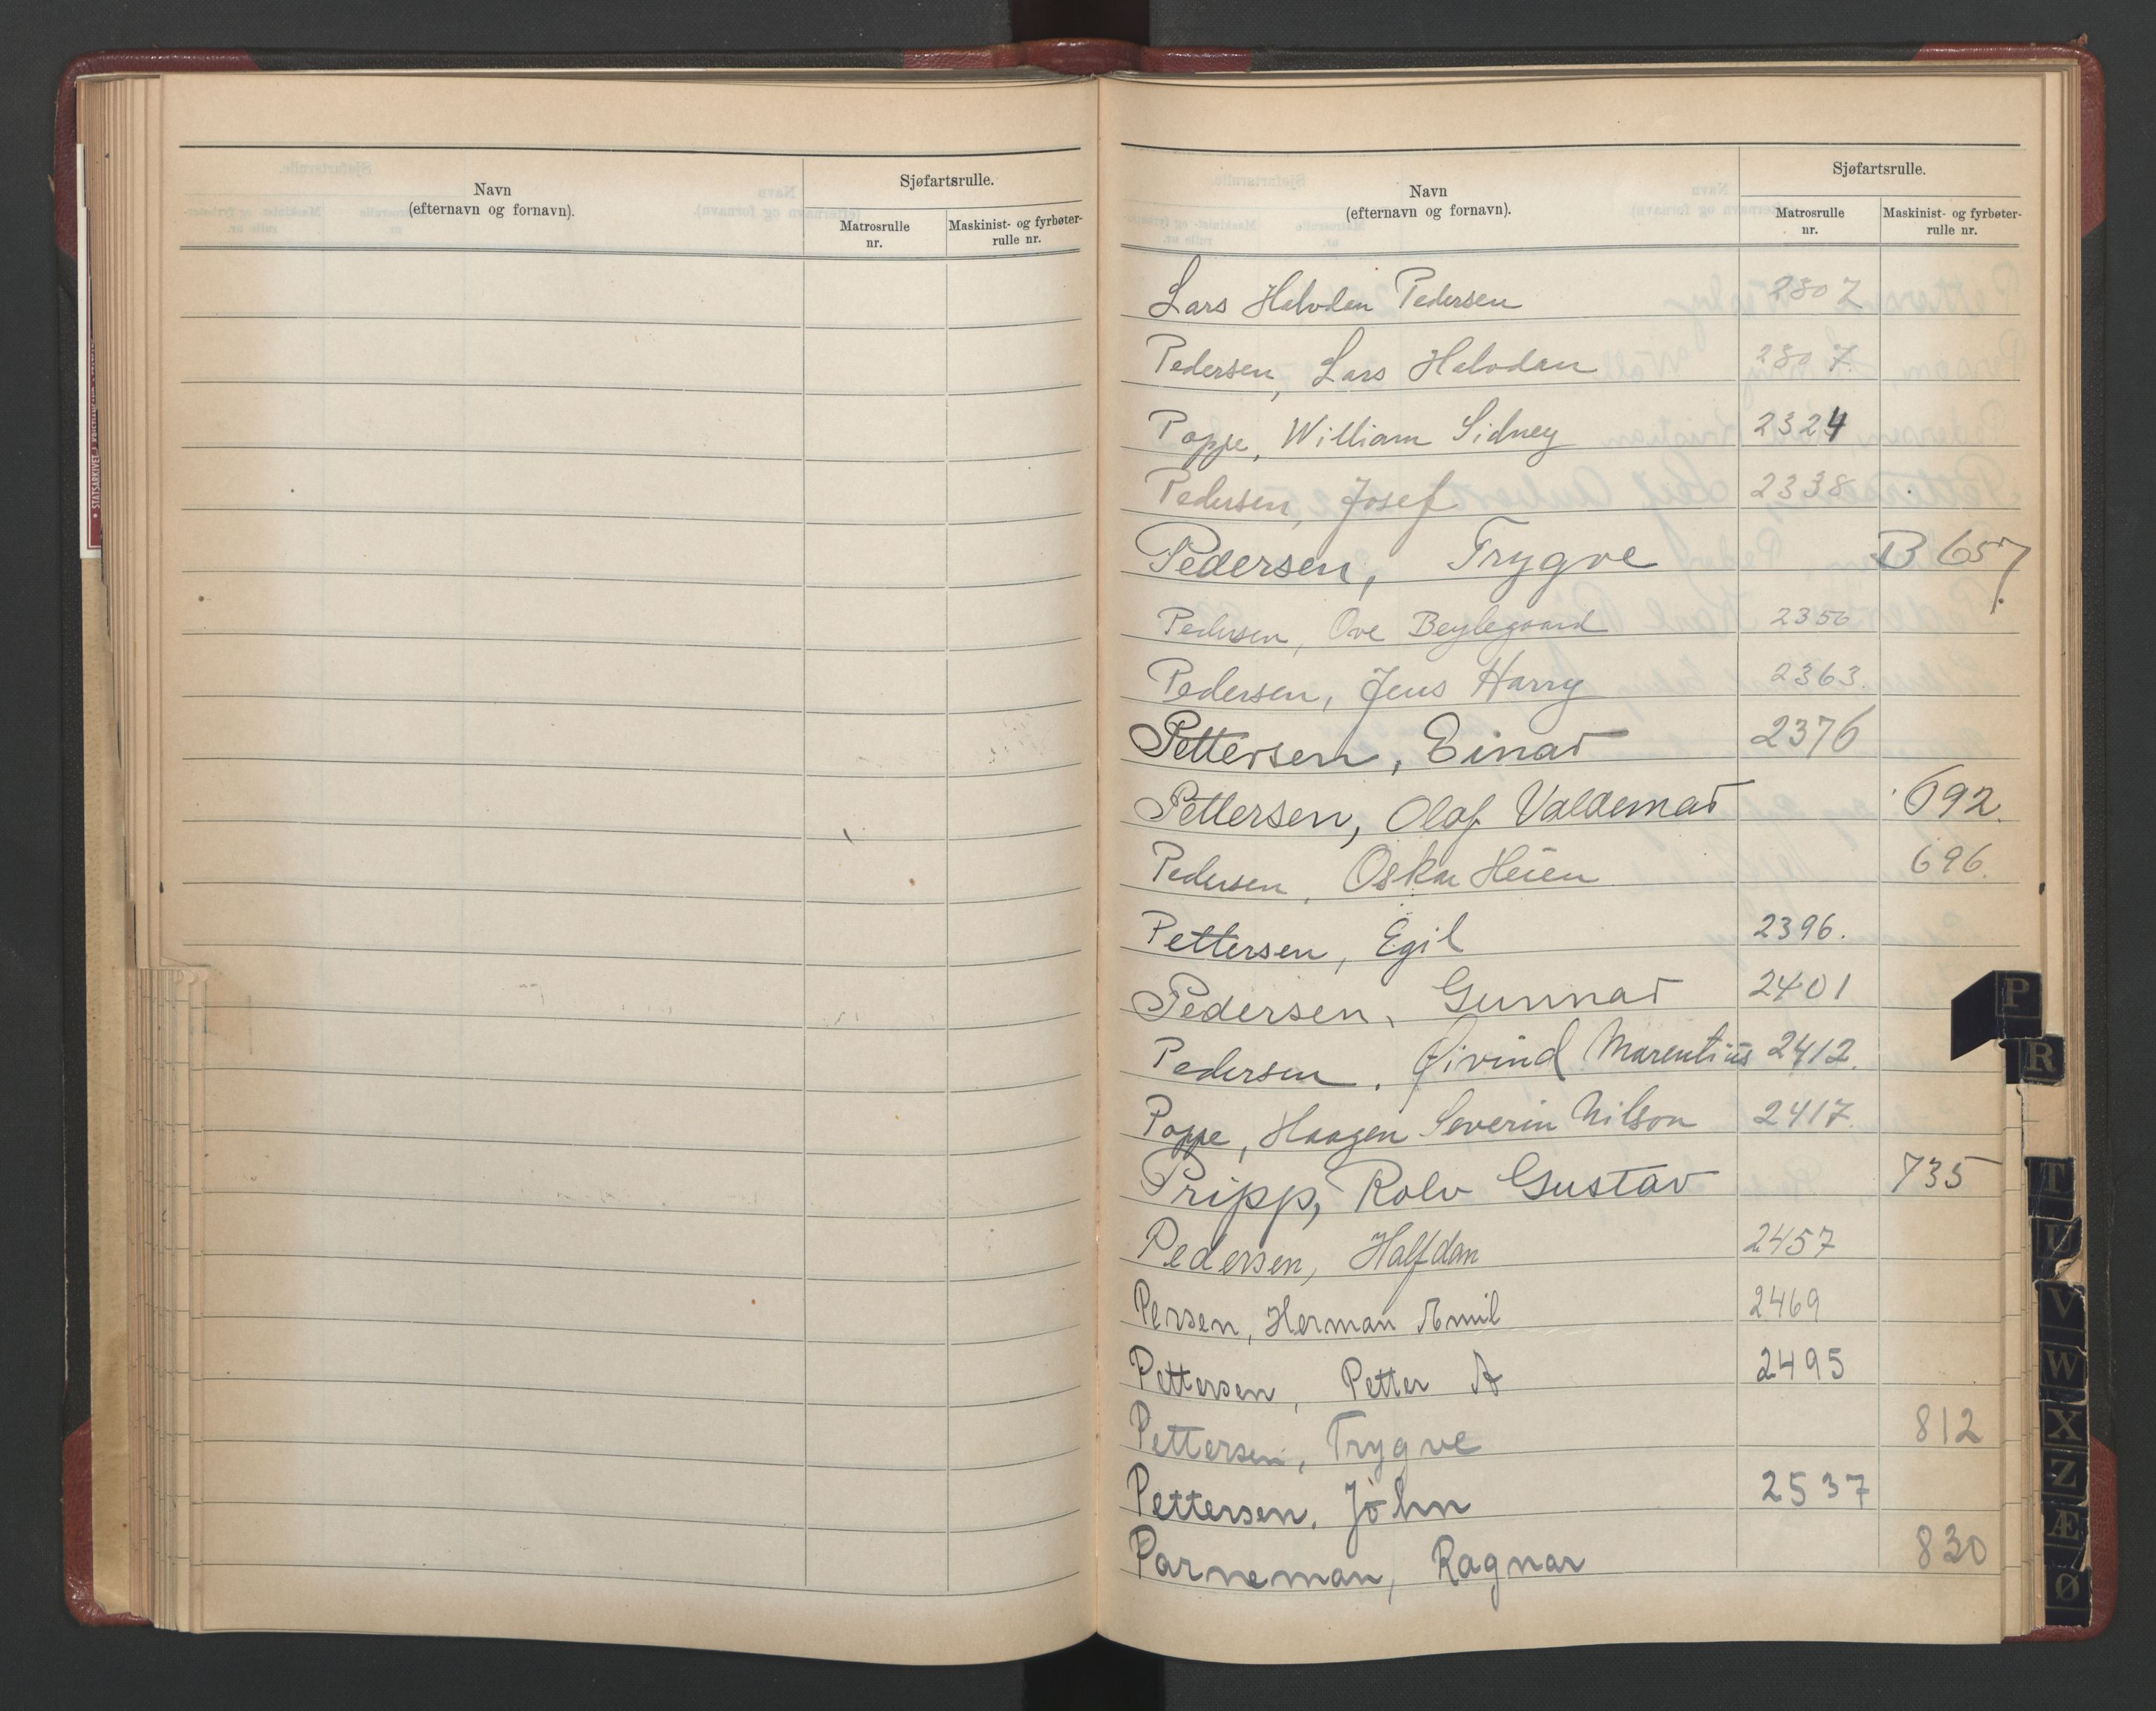 Navn
(efternavn og fornavn).
Sjøfartsrulle.
Matrosrulle
nr.
Maskinist- og fyrbøter-
rulle nr.
Navn
(efternavn og fornavn).
Sjøfartsrulle.
Matrosrulle
nr.
Maskinist- og fyrbøter-
rulle nr.
Lars Halvdan Pedersen 2307
Pedersen, Lars Halvdan 2307.
Poppe, William Sidney 2324
Pedersen, Josef 2338
Pedersen, Trygve B 657.
Pedersen, Ove Beylegaard 2356
Pedersen, Jens Harry 2363.
Pettersen, Einar 2376
Pettersen, Olaf Valdemar 692.
Pedersen, Oskar Heien 696.
Pettersen, Egil 2396.
Pedersen, Gunnar 2401
Pedersen, Øivind Marentius 2412.
Poppe, Haagen Severin Nilson 2417.
Pripp, Rolv Gustav 735
Pedersen, Halfdan 2457
Persen, Herman Emil 2469
Pettersen, Petter A 2495
Pettersen, Trygve 812
Pettersen, John 2537
Parneman, Ragnar 830
P
R
T
U
V
W
X
Z
Æ
Ø